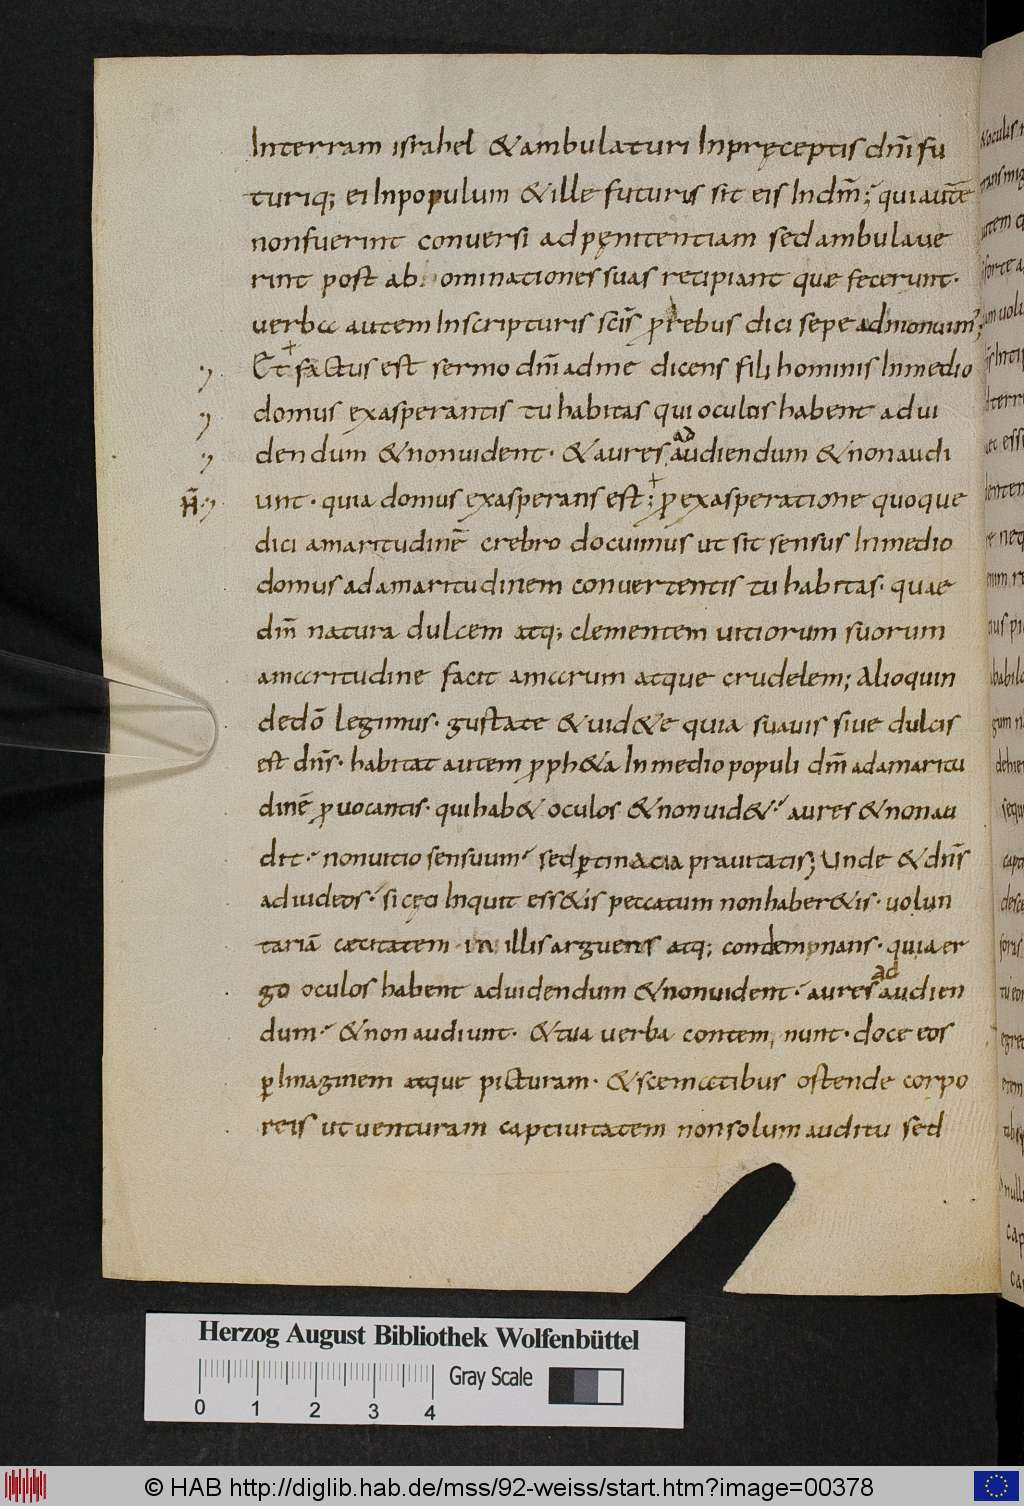 In terram israhel & ambulaturi In pręceptis dn̄i fu
turiq; ei In populum & ille futurus sit eis In dn̄m; qui autē
non fuerint conversi ad pęnitentiam sed ambulave
rint post ab ominationes suas recipiant quae fecerunt.
verba autem In scripturis scīs ꝓ rebus dici sepe admonuim;
Et factus est sermo dn̄i ad me dicens fili hominis In medio
domus exasperantis tu habitas qui oculos habent ad vi
dendum & non vident. & aures ad audiendum & non audi
unt. quia domus exasperans est; ꝓ exasperatione quoque
dici amaritudinē crebro docuimus ut sit sensus In medio
domus ad amaritudinem convertentis tu habitas. quae
dn̄m natura dulcem atq; clementem vitiorum suorum
amaritudine facit amarum atque crudelem; Alioquin
de dō legimus. gustate & vid&e quia suavis sive dulcis
est dn̄s. habitat autem ꝓph&a In medio populi dn̄m ad amaritu
dinē ꝓvocantis. qui hab& oculos & non vid&. aures & non au
dit. non vitio sensuum. sed ꝑtinacia pravitatis; Unde & dn̄s
ad iudeos. si cęci Inquit ess&is peccatum non haber&is. volun
tariā cæcitatem in illis arguens atq; condempnans. quia er
go oculos habent ad videndum & non vident. aures ad audien
dum. & non audiunt. & tua verba contem nunt. doce eos
ꝑ Imaginem atque picturam. & scematibus ostende corpo
reis ut venturam captivitatem non solum auditu sed
Herzog August Bibliothek Wolfenbüttel
Gray Scale
0 1 2 3 4
© HAB http://diglib.hab.de/mss/92-weiss/start.htm?image=00378